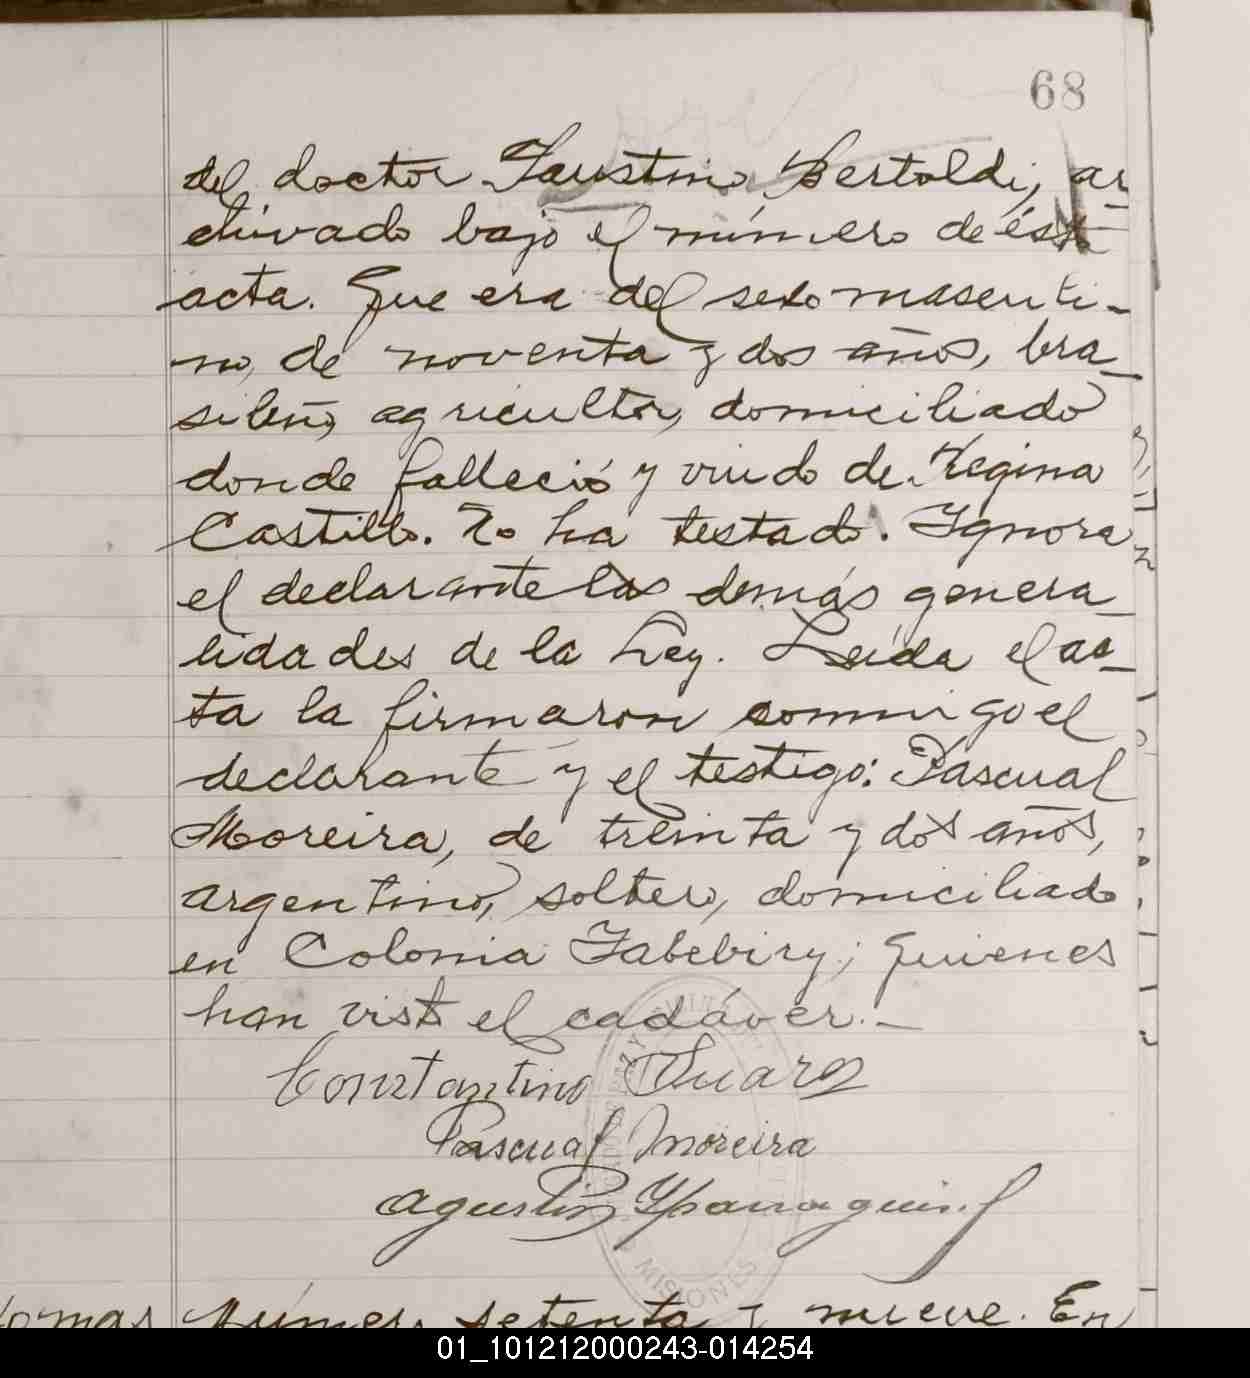 68
del doctor Faustino Bertoldi, ar
chivado bajo el número de ésta
acta. Que era del sexo masculi-
no, de noventa y dos años, bra_
sileño, agricultor, domiciliado
donde falleció y viudo de Regina
Castillo. No ha testado. Ignora
el declarante las demás genera_
lidades de la Ley. Leída el ac_
ta la firmaron conmigo el
declarante y el testigo: Pascual
Moreira, de treinta y dos años,
argentino, soltero, domiciliado
en Colonia Yabebiry; quienes
han visto el cadáver.-
Constantino Suarez
Pascual Moreira
Agustin
MISIONES
Número setenta y nueve. En
01_101212000243-014254